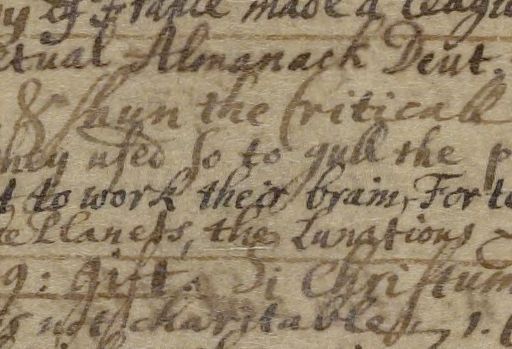 of France made a leagu
etual Almanack Deut.
& shun the Criticall
they used so to gull the p
t to work their brain, For to
e Planets, the Lunations
9: gift. Si Christum
is not charitable 1.